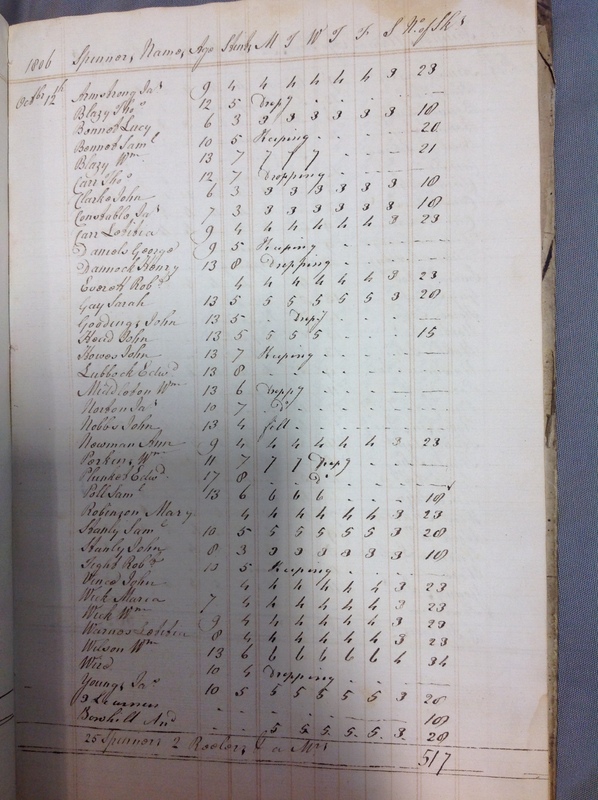 1806 Spinners Names Age Stint M T W T F S No. of Sks
Octbr 12th Armstrong Jas 9 4 4 4 4 4 4 3 23
Blazy Thos 12 5 Drop'g - - - -
Bonnod Lucy 6 3 3 3 3 3 3 3 18
Bonnod Saml 10 5 Reeping - - - 20
Blazy Wm 13 7 7 7 7 - - - 21
Carr Thos 12 7 Dropping - - - -
Clarke John 6 3 3 3 3 3 3 3 18
Constable Jas 7 3 3 3 3 3 3 3 18
Carr Letitia 9 4 4 4 4 4 4 3 23
Daniels George 9 5 Reeping - - - -
Dannock Henry 13 8 Dropping - - - -
Everett Robt 4 4 4 4 4 4 3 23
Gay Sarah 13 5 5 5 5 5 5 3 28
Goodings John 13 5 - - Drop'g - - -
Heard John 13 5 5 5 5 - - - 15
Howes John 13 7 Reeping - - - -
Lubbock Edwd 13 8 - - - - - -
Middleton Wm 13 6 Drop'g - - - -
Norton Jas 10 7 - Do - - - -
Nobbs John 13 4 Ill - - - - -
Newman Ann 9 4 4 4 4 4 4 3 23
Perkins Wm 11 7 7 7 Drop'g - - -
Plunket Edwd 17 8 - - Do - - -
Poll Saml 13 6 6 6 6 - - - 18
Robinson Mary 4 4 4 4 4 4 3 23
Stanly Saml 10 5 5 5 5 5 5 3 28
Stanly John 8 3 3 3 3 3 3 3 18
Tight Robt 13 5 Reeping - - - -
Vince John 4 4 4 4 4 4 3 23
Wick Maria 7 4 4 4 4 4 4 3 23
Wick Wm 9 4 4 4 4 4 4 3 23
Letitia 8 4 4 4 4 4 4 3 23
Wilson Wm 13 6 6 6 6 6 6 4 34
Ward 10 4 Dropping - - - -
Youngs Jas 10 5 5 5 5 5 5 3 28
3 Learners - - - - - - 18
Bowhill And - - 5 5 5 5 5 3 28
25 Spinners 2 Reelers & a Mrs 517